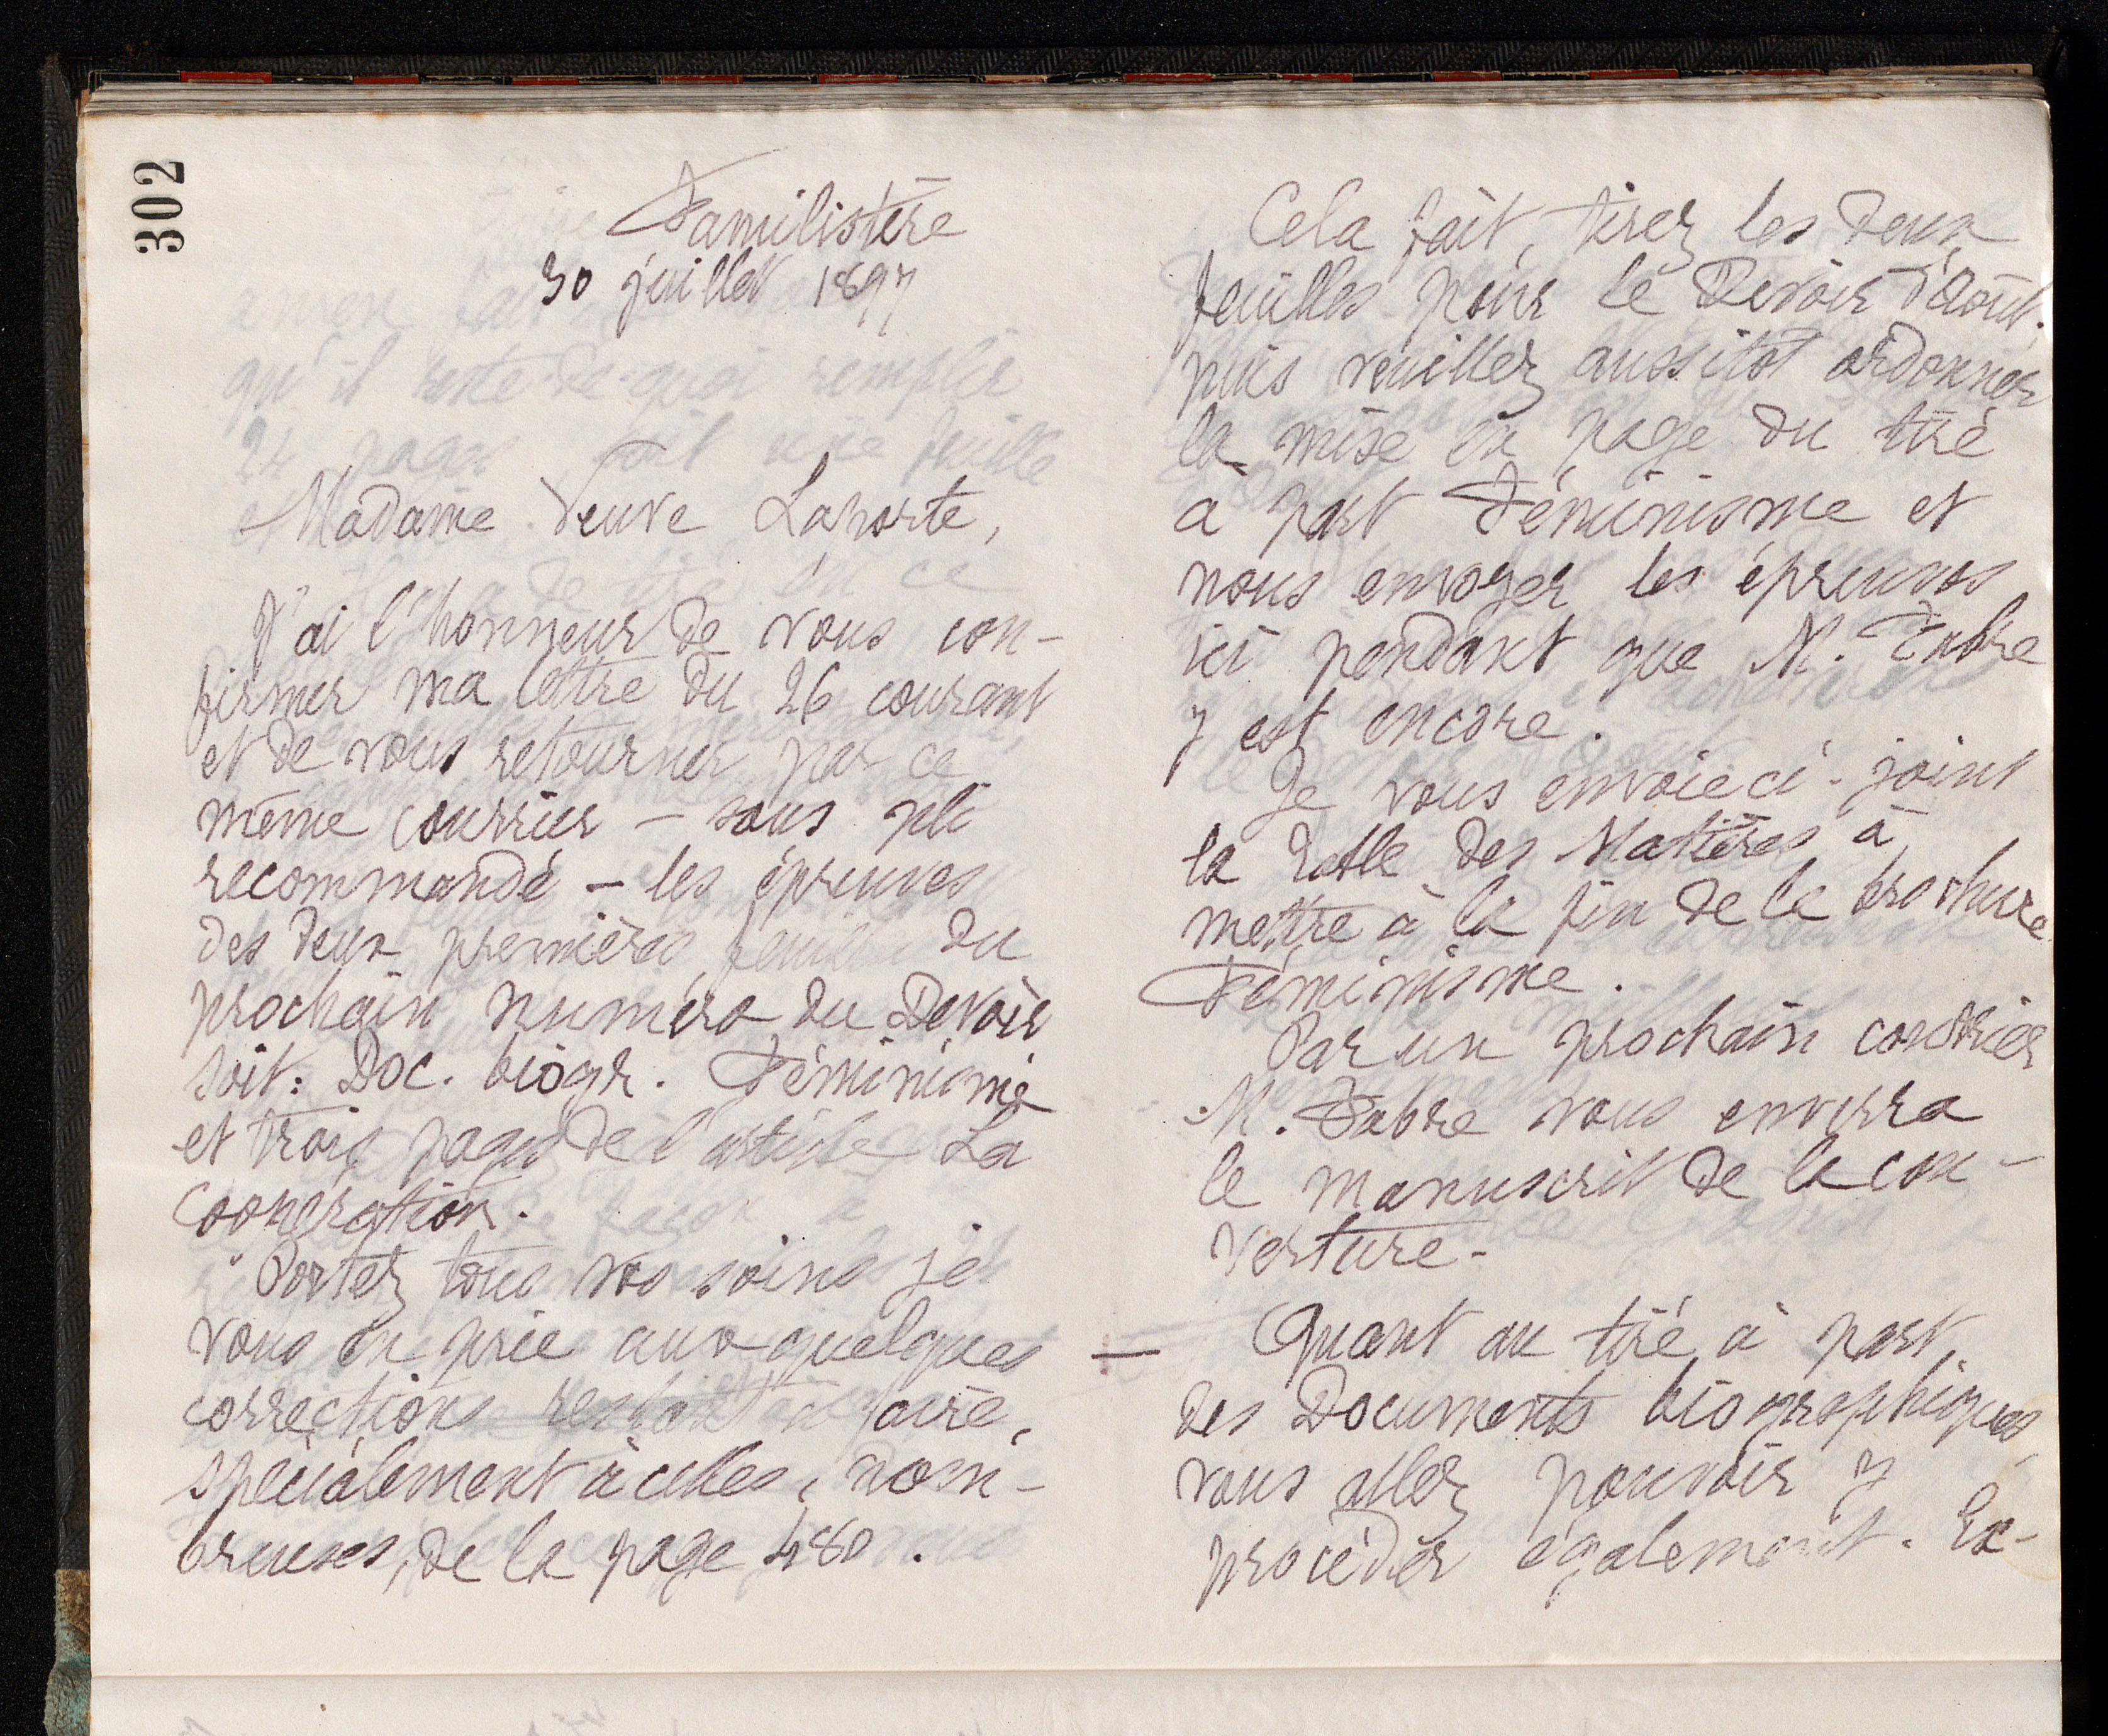 302
Familistère
30 juillet 1897
Madame Veuve Laporte,
J'ai l'honneur de vous con-
firmer ma lettre du 26 courant
et de vous retourner par ce
même courrier – sous pli
recommandé – les épreuves
des deux premières feuilles du
prochain numéro du Devoir
soit: Doc. biogr. Féminisme
et trois pages de l'article La
Coopération.
Portez tous vos soins je
vous en prie aux quelques
corrections restant à faire,
spécialement à celles, nom-
breuses, de la page 480.
Cela fait, tirez les deux
feuilles pour le Devoir d'Août.
puis veuillez aussitôt ordonner
la mise en page du tiré
à part Féminisme et
nous envoyer les épreuves
ici pendant que M. Fabre
y est encore.
Je vous envoie ci-joint
la Table des Matières à
mettre à la fin de la brochure
Féminisme.
Par un prochain courrier
M. Fabre vous enverra
le manuscrit de la cou-
verture.
— Quant au tiré à part
des Documents biographiques,
vous allez pouvoir y
procéder également. Ex-